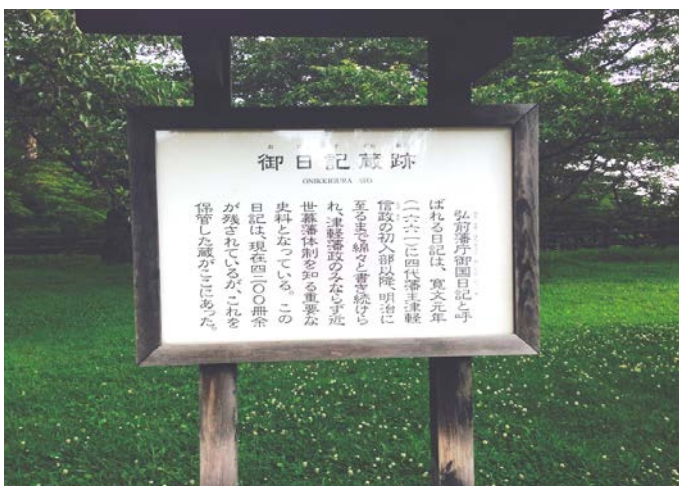 御日記蔵跡
ONIKKIGURA ATO
弘前藩庁御国日記と呼
ばれる日記は、寛文元年
(一六六一)に四代藩主津軽
信政の初入部以降、明治に
至るまで綿々と書き続けら
れ、津軽藩政のみならず近
世幕藩体制を知る重要な
史料となっている。この
日記は、現在四二〇〇冊余
が残されているが、これを
保管した蔵がここにあった。